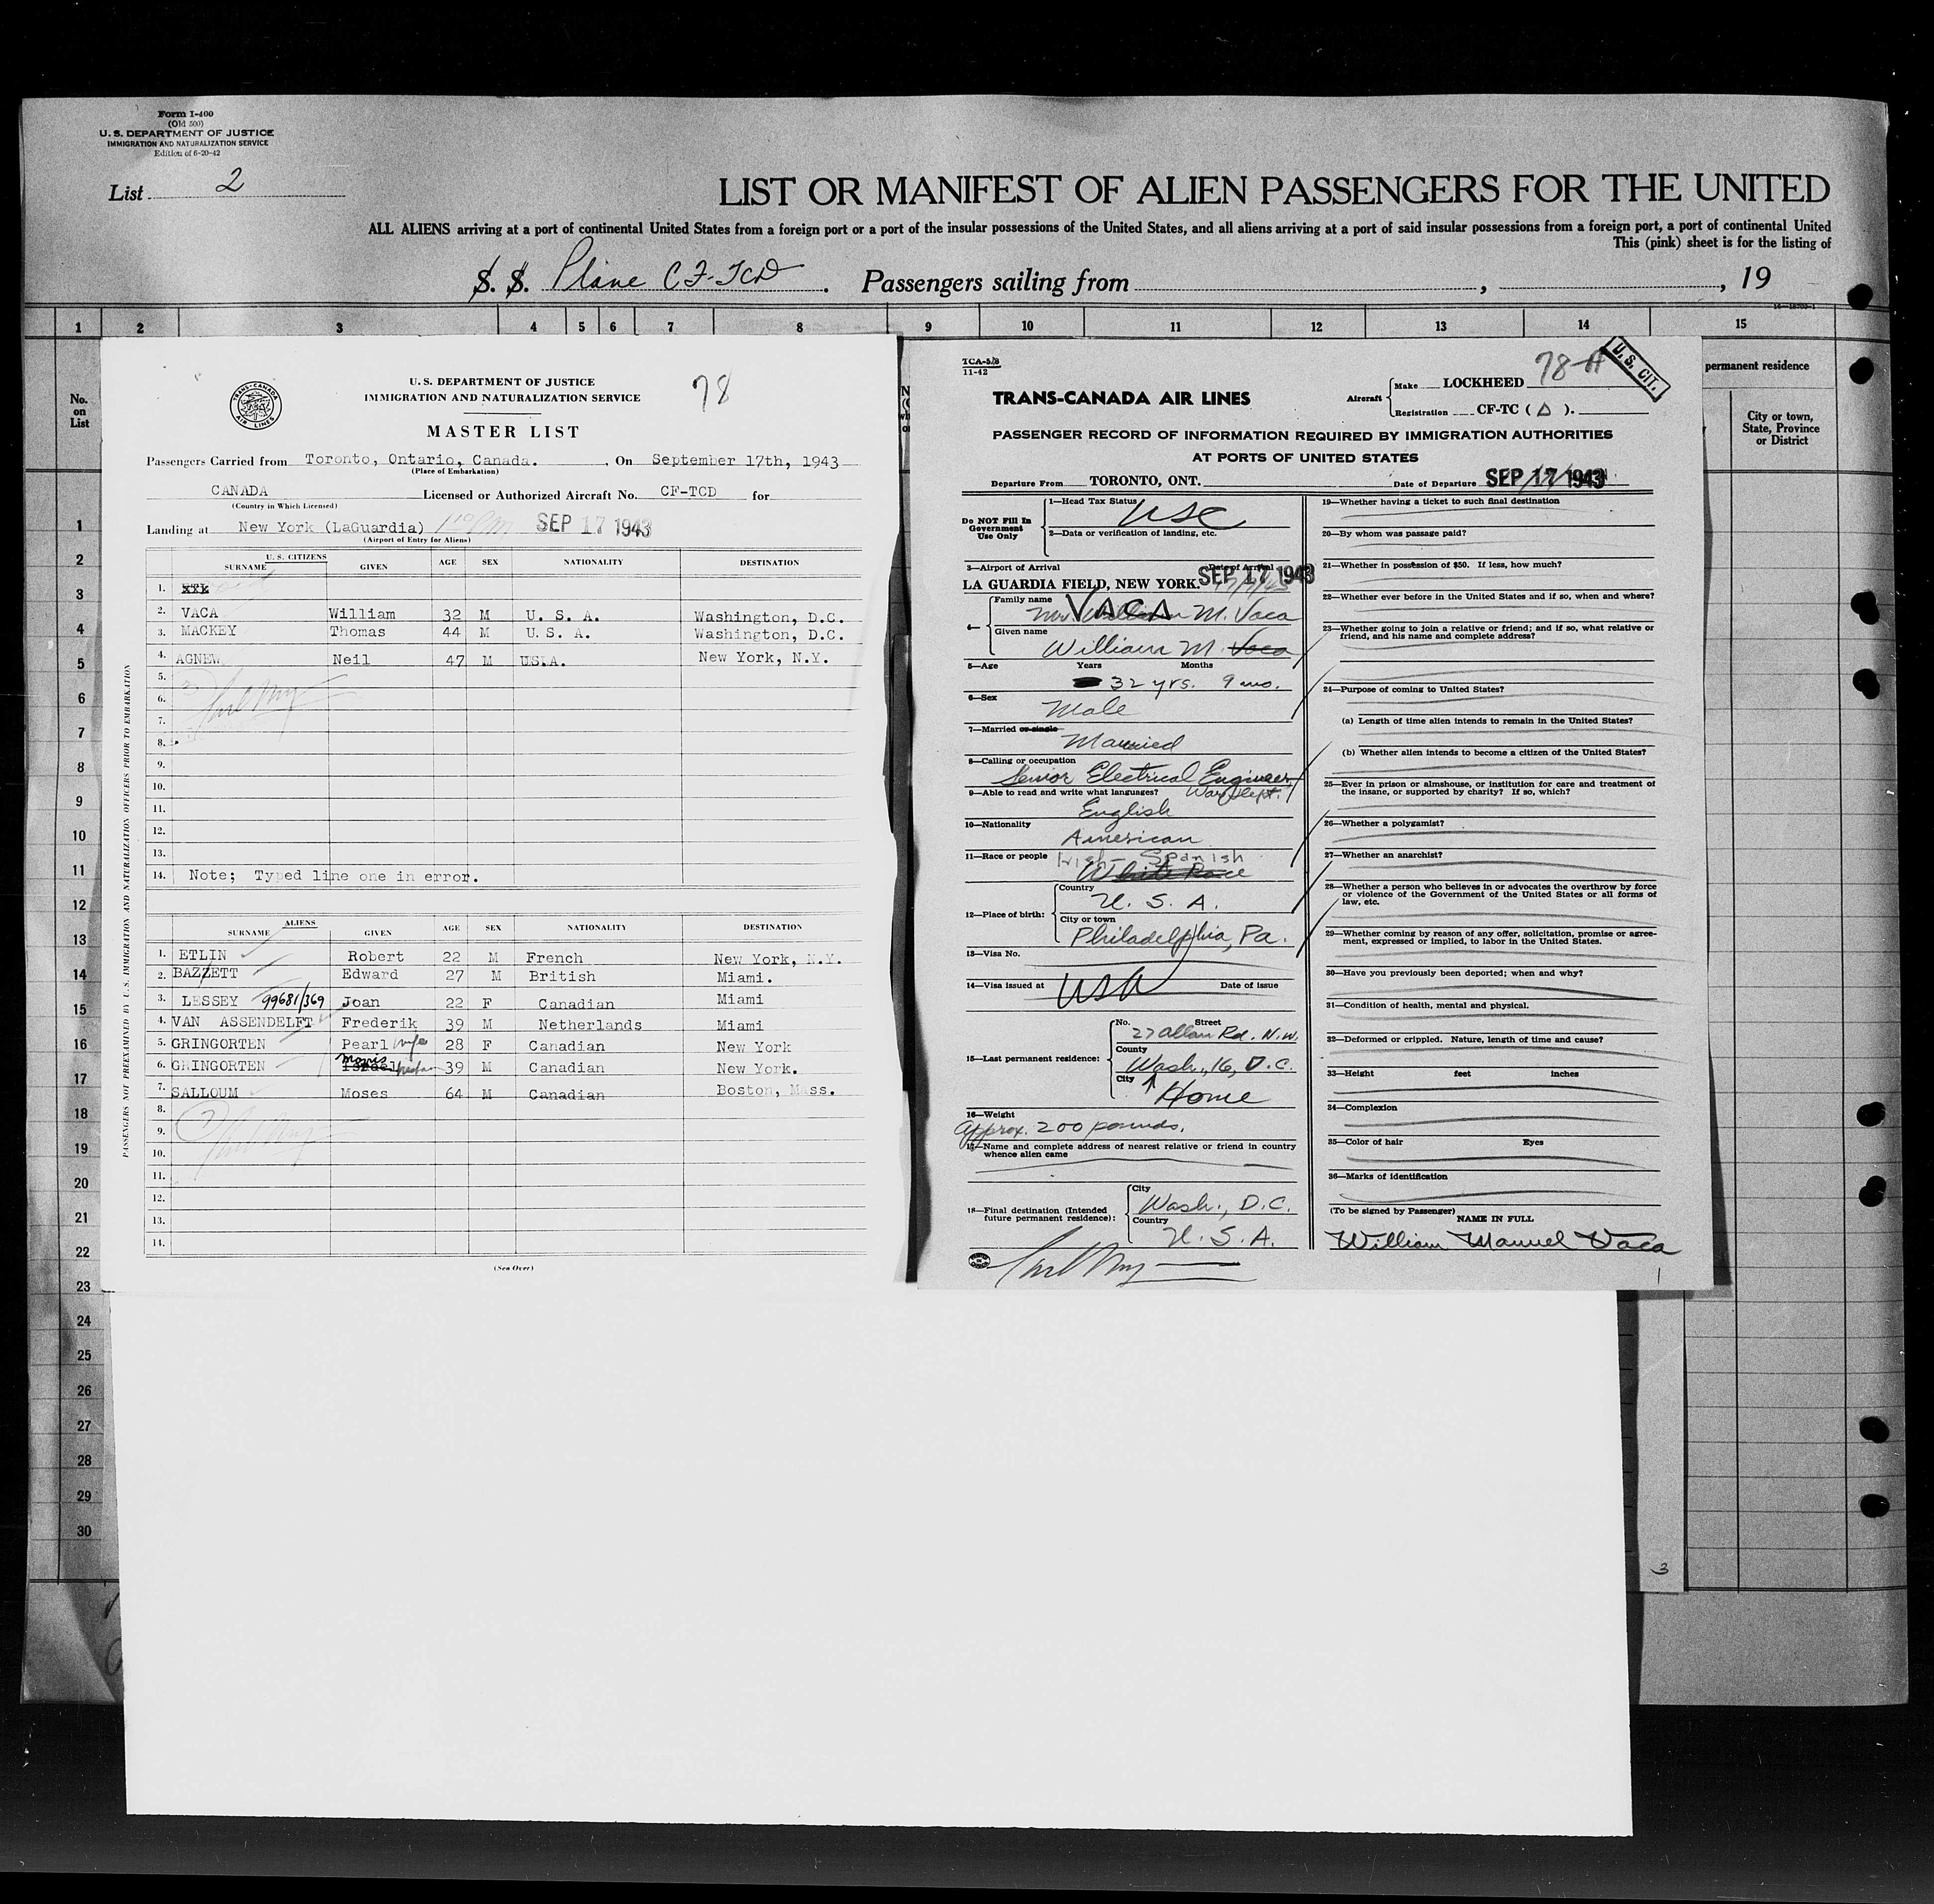 Form I-400
(Old 500)
U. S. DEPARTMENT OF JUSTICE
IMMIGRATION AND NATURALIZATION SERVICE
Edition of 6-20-42
List 2
LIST OR MANIFEST OF ALIEN PASSENGERS FOR THE UNITED
ALL ALIENS arriving at a port of continental United States from a foreign port or a port of the insular possessions of the United States, and all aliens arriving at a port of said insular possessions from a foreign port, a port of continental United
This (pink) sheet is for the listing of
S. S. Plane CF-TCD. Passengers sailing from , , 19
1 2 3 4 5 6 7 8 9 10 11 12 13 14 15
No. on List
permanent residence
City or town, State, Province or District
1
2
3
4
5
6
7
8
9
10
11
12
13
14
15
16
17
18
19
20
21
22
23
24
25
26
27
28
29
30
TRANS-CANADA AIR LINES
U. S. DEPARTMENT OF JUSTICE
IMMIGRATION AND NATURALIZATION SERVICE
78
MASTER LIST
Passengers Carried from Toronto, Ontario, Canada. , On September 17th, 1943
(Place of Embarkation)
CANADA Licensed or Authorized Aircraft No. CF-TCD for
(Country in Which Licensed)
Landing at New York (LaGuardia) 1 10 PM SEP 17 1943
(Airport of Entry for Aliens)
U. S. CITIZENS
SURNAME GIVEN AGE SEX NATIONALITY DESTINATION
1. XXX
2. VACA William 32 M U. S. A. Washington, D.C.
3. MACKEY Thomas 44 M U. S. A. Washington, D.C.
4. AGNEW Neil 47 M U.S.A. New York, N.Y.
5.
6.
7.
8.
9.
10.
11.
12.
13.
14. Note; Typed line one in error.
ALIENS
SURNAME GIVEN AGE SEX NATIONALITY DESTINATION
1. ETLIN Robert 22 M French New York, N.Y.
2. BAZZETT Edward 27 M British Miami.
3. LESSEY 99681/369 Joan 22 F Canadian Miami
4. VAN ASSENDELFT Frederik 39 M Netherlands Miami
5. GRINGORTEN Pearl wife 28 F Canadian New York
6. GRINGORTEN Morris 39 M Canadian New York.
7. SALLOUM Moses 64 M Canadian Boston, Mass.
8.
9.
10.
11.
12.
13.
14.
(See Over)
PASSENGERS NOT PREEXAMINED BY U. S. IMMIGRATION AND NATURALIZATION OFFICERS PRIOR TO EMBARKATION
TCA-528
11-42
78-A
U. S. CIT.
TRANS-CANADA AIR LINES
Aircraft Make LOCKHEED
Registration CF-TC ( D ).
PASSENGER RECORD OF INFORMATION REQUIRED BY IMMIGRATION AUTHORITIES
AT PORTS OF UNITED STATES
Departure From TORONTO, ONT. Date of Departure SEP 17 1943
Do NOT Fill In Government Use Only
1—Head Tax Status USC
2—Data or verification of landing, etc.
3—Airport of Arrival Date of Arrival
LA GUARDIA FIELD, NEW YORK. SEP 17 1943
4— Family name VACA
Mr. William M. Vaca
Given name
William M. Vaca
5—Age Years Months
32 yrs. 9 mo.
6—Sex
Male
7—Married or single
Married
8—Calling or occupation
Senior Electrical Engineer
War Dept.
9—Able to read and write what languages?
English
10—Nationality
American
11—Race or people Irish - Spanish
White Race
12—Place of birth: Country
U. S. A.
City or town
Philadelphia, Pa.
13—Visa No.
14—Visa issued at USA Date of issue
15—Last permanent residence: No. Street
27 Allan Rd. N.W.
County
Wash., 16, D.C.
City
Home
16—Weight
Approx. 200 pounds.
17—Name and complete address of nearest relative or friend in country whence alien came
18—Final destination (Intended future permanent residence): City
Wash., D.C.
Country
U. S. A.
19—Whether having a ticket to such final destination
20—By whom was passage paid?
21—Whether in possession of $50. If less, how much?
22—Whether ever before in the United States and if so, when and where?
23—Whether going to join a relative or friend; and if so, what relative or friend, and his name and complete address?
24—Purpose of coming to United States?
(a) Length of time alien intends to remain in the United States?
(b) Whether alien intends to become a citizen of the United States?
25—Ever in prison or almshouse, or institution for care and treatment of the insane, or supported by charity? If so, which?
26—Whether a polygamist?
27—Whether an anarchist?
28—Whether a person who believes in or advocates the overthrow by force or violence of the Government of the United States or all forms of law, etc.
29—Whether coming by reason of any offer, solicitation, promise or agreement, expressed or implied, to labor in the United States.
30—Have you previously been deported; when and why?
31—Condition of health, mental and physical.
32—Deformed or crippled. Nature, length of time and cause?
33—Height feet inches
34—Complexion
35—Color of hair Eyes
36—Marks of identification
(To be signed by Passenger)
NAME IN FULL
William Manuel Vaca
1
3